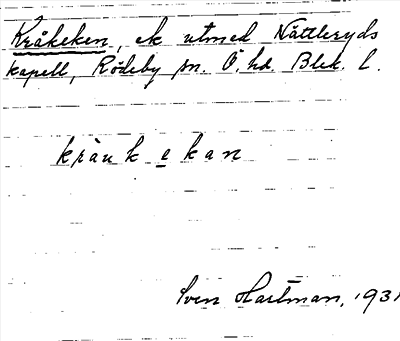 Kråkeken, ek utmed Nättleryds
kapell, Rödeby sn. Ö. hd. Blek. l.
kråu k e kan
Sven Hartman, 1931